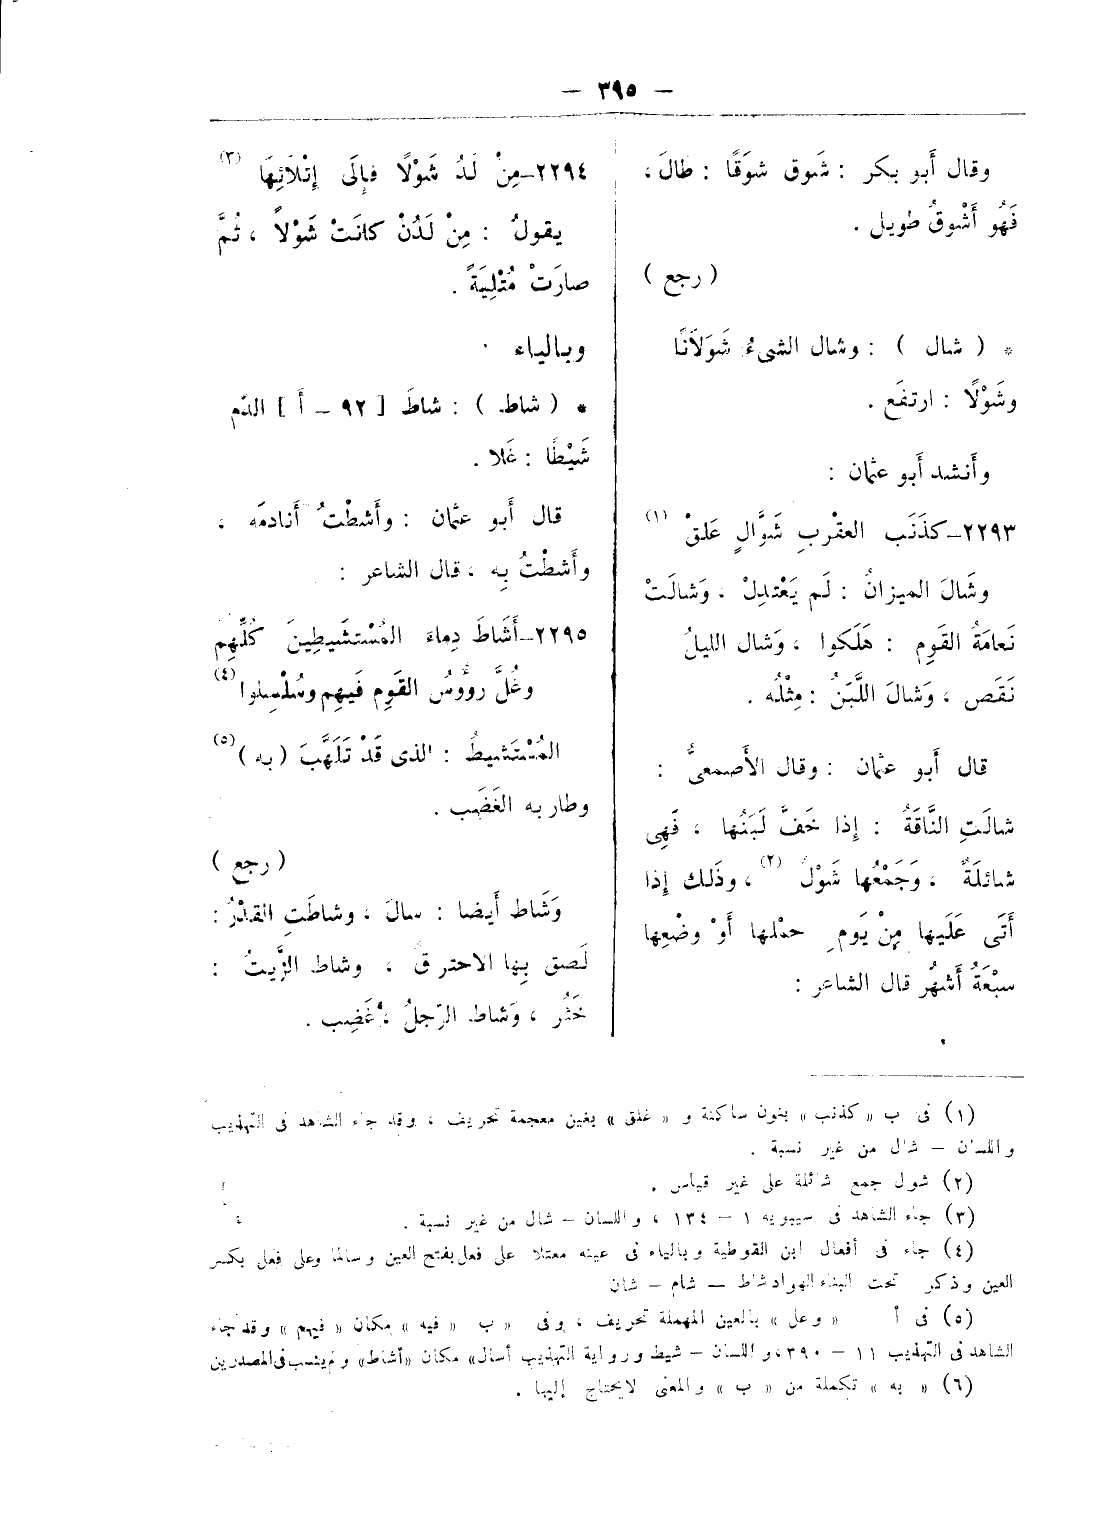 — ٣٩٥ —
وقال أَبو بكر : شَوِق شوَقًا : طالَ ،
فَهُو أَشْوقُ طويل .
( رجع )
* ( شال ) : وشال الشىءُ شَوَلَانًا
وشَوْلًا : ارتفَع .
وأَنشد أَبو عثمان :
٢٢٩٣–كذَنَب العقْربِ شَوَّالٍ عَلقْ (١)
وشَالَ الميزانُ : لَم يَعْتدِلْ ، وَشالَتْ
نَعامَةُ القَومِ : هَلَكوا ، وَشال الليلُ
نَقَص ، وَشالَ اللَّبَنُ : مِثْلُه .
قال أَبو عثمان : وقال الأَصمعىُّ :
شالَتِ النَّاقَةُ : إِذا خَفَّ لَبَنُها ، فَهِى
شائلَةٌ ، وَجَمْعُها شَوْلٌ (٢) ، وذَلك إِذا
أَتَى عَلَيها مِنْ يَومِ حمْلها أَوْ وضْعِها
سبْعَةُ أَشهُر قال الشاعر :
٢٢٩٤–مِنْ لَدُ شَوْلًا فإِلَى إِتْلَائِهَا (٣)
يقولُ : مِنْ لَدُنْ كانَتْ شَوْلاً ، ثُمَّ
صارَتْ مُتْلِيَةً .
وبالياء
* ( شاط ) : شاطَ [ ٩٢ – أَ ] الدّم
شَيْطًا : غَلا .
قال أَبو عثمان : وأَشطْتُ أَنادمَه ،
وأَشطْتُ بِه ، قال الشاعر :
٢٢٩٥–أَشَاطَ دِماءَ المُسْتشَيطِينَ كُلِّهِم
وغُلَّ روُؤسُ القَومِ فَيهِم وسُلْسِلوا (٤)
المُسْتَشيطُ : الذى قَدْ تَلَهَّبَ ( به ) (٥)
وطار به الغَضَب .
( رجع )
وَشَاط أَيضا : سالَ ، وشاطَتِ القدْرُ :
لَصق بِها الاحترقُ ، وشاط الزَّيتُ :
خَثُر ، وَشاط الرّجلُ ، غَضِب .
(١) فى ب « كذنب » بنون ساكنة و « غلق » بغين معجمة تحريف ، وقد جاء الشاهد فى التهذيب
واللسان – شال من غير نسبة .
(٢) شول جمع شائلة على غير قياس .
(٣) جاء الشاهد فى سيبويه ١ – ١٣٤ ، واللسان – شال من غير نسبة .
(٤) جاء فى أفعال ابن القوطية وبالياء فى عينه معتلا على فعل بفتح العين وسالما وعلى فعل بكسر
العين وذكر تحت البناء الهواد شاط — شام – شان
(٥) فى أ « وعل » بالعين المهملة تحريف ، وفى « ب « فيه » مكان « فيهم » وقد جاء
الشاهد فى التهذيب ١١ – ٣٩٠ ، واللسان – شيط ورواية التهذيب أسال» مكان «أشاط» ولم ينسب فى المصدرين
(٦) « به » تكملة من « ب » والمعنى لايحتاج إليها .